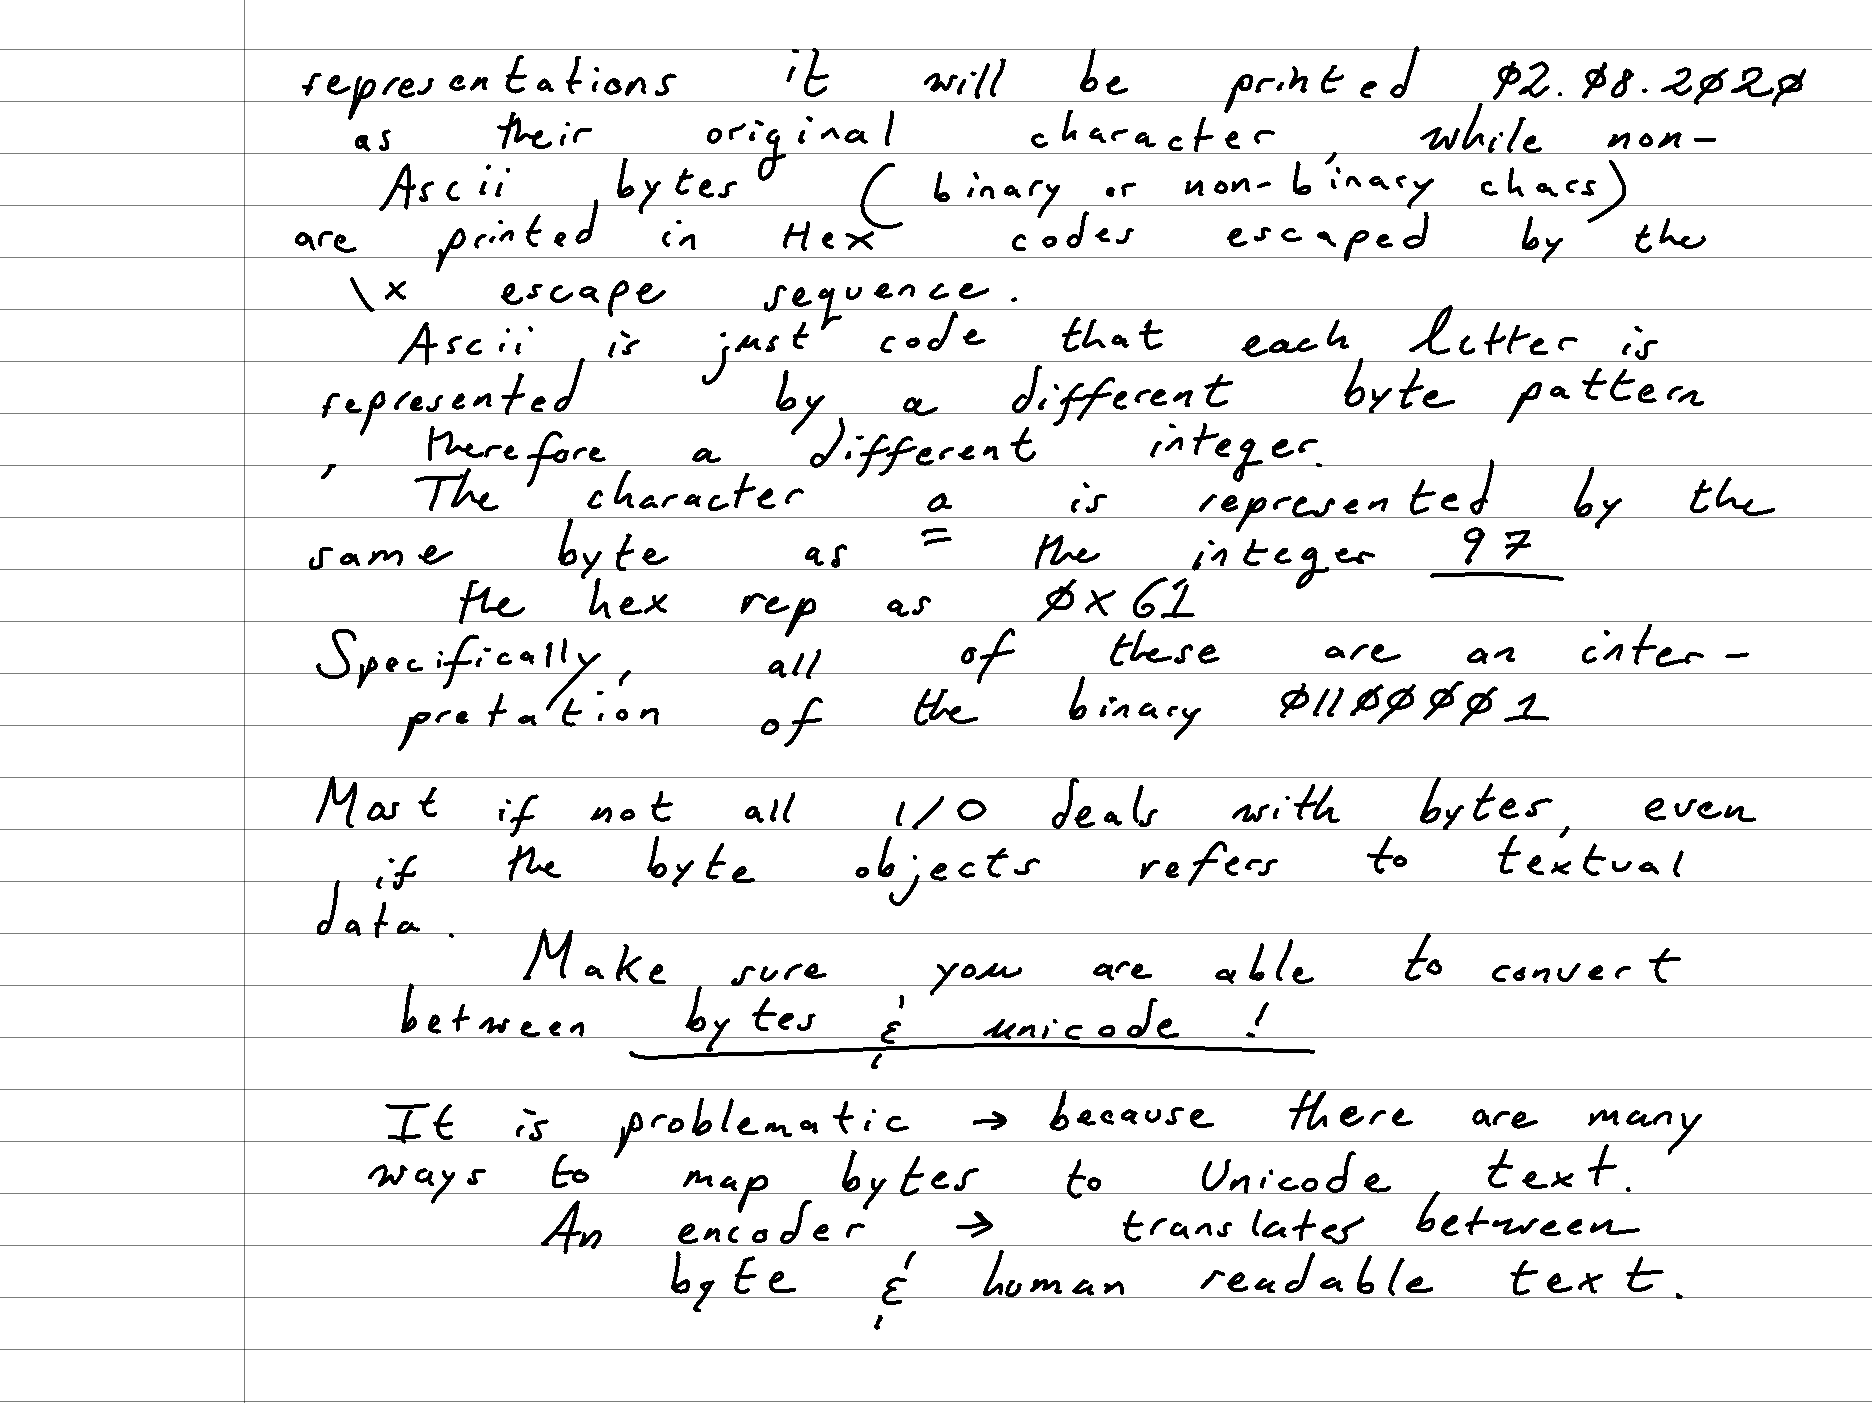 representations it will be printed 02.08.2020
as their original character, while non-
Ascii bytes (binary or non-binary chars)
are printed in Hex codes escaped by the
\x escape sequence.
Ascii is just code that each letter is
represented by a different byte pattern
, therefore a different integer.
The character a is represented by the
same byte as the integer 97
the hex rep as 0x61
Specifically, all of these are an inter-
pretation of the binary 01100001
Most if not all I/O deals with bytes, even
if the byte objects refers to textual
data.
Make sure you are able to convert
between bytes & unicode!
It is problematic → because there are many
ways to map bytes to Unicode text.
An encoder → translates between
byte & human readable text.